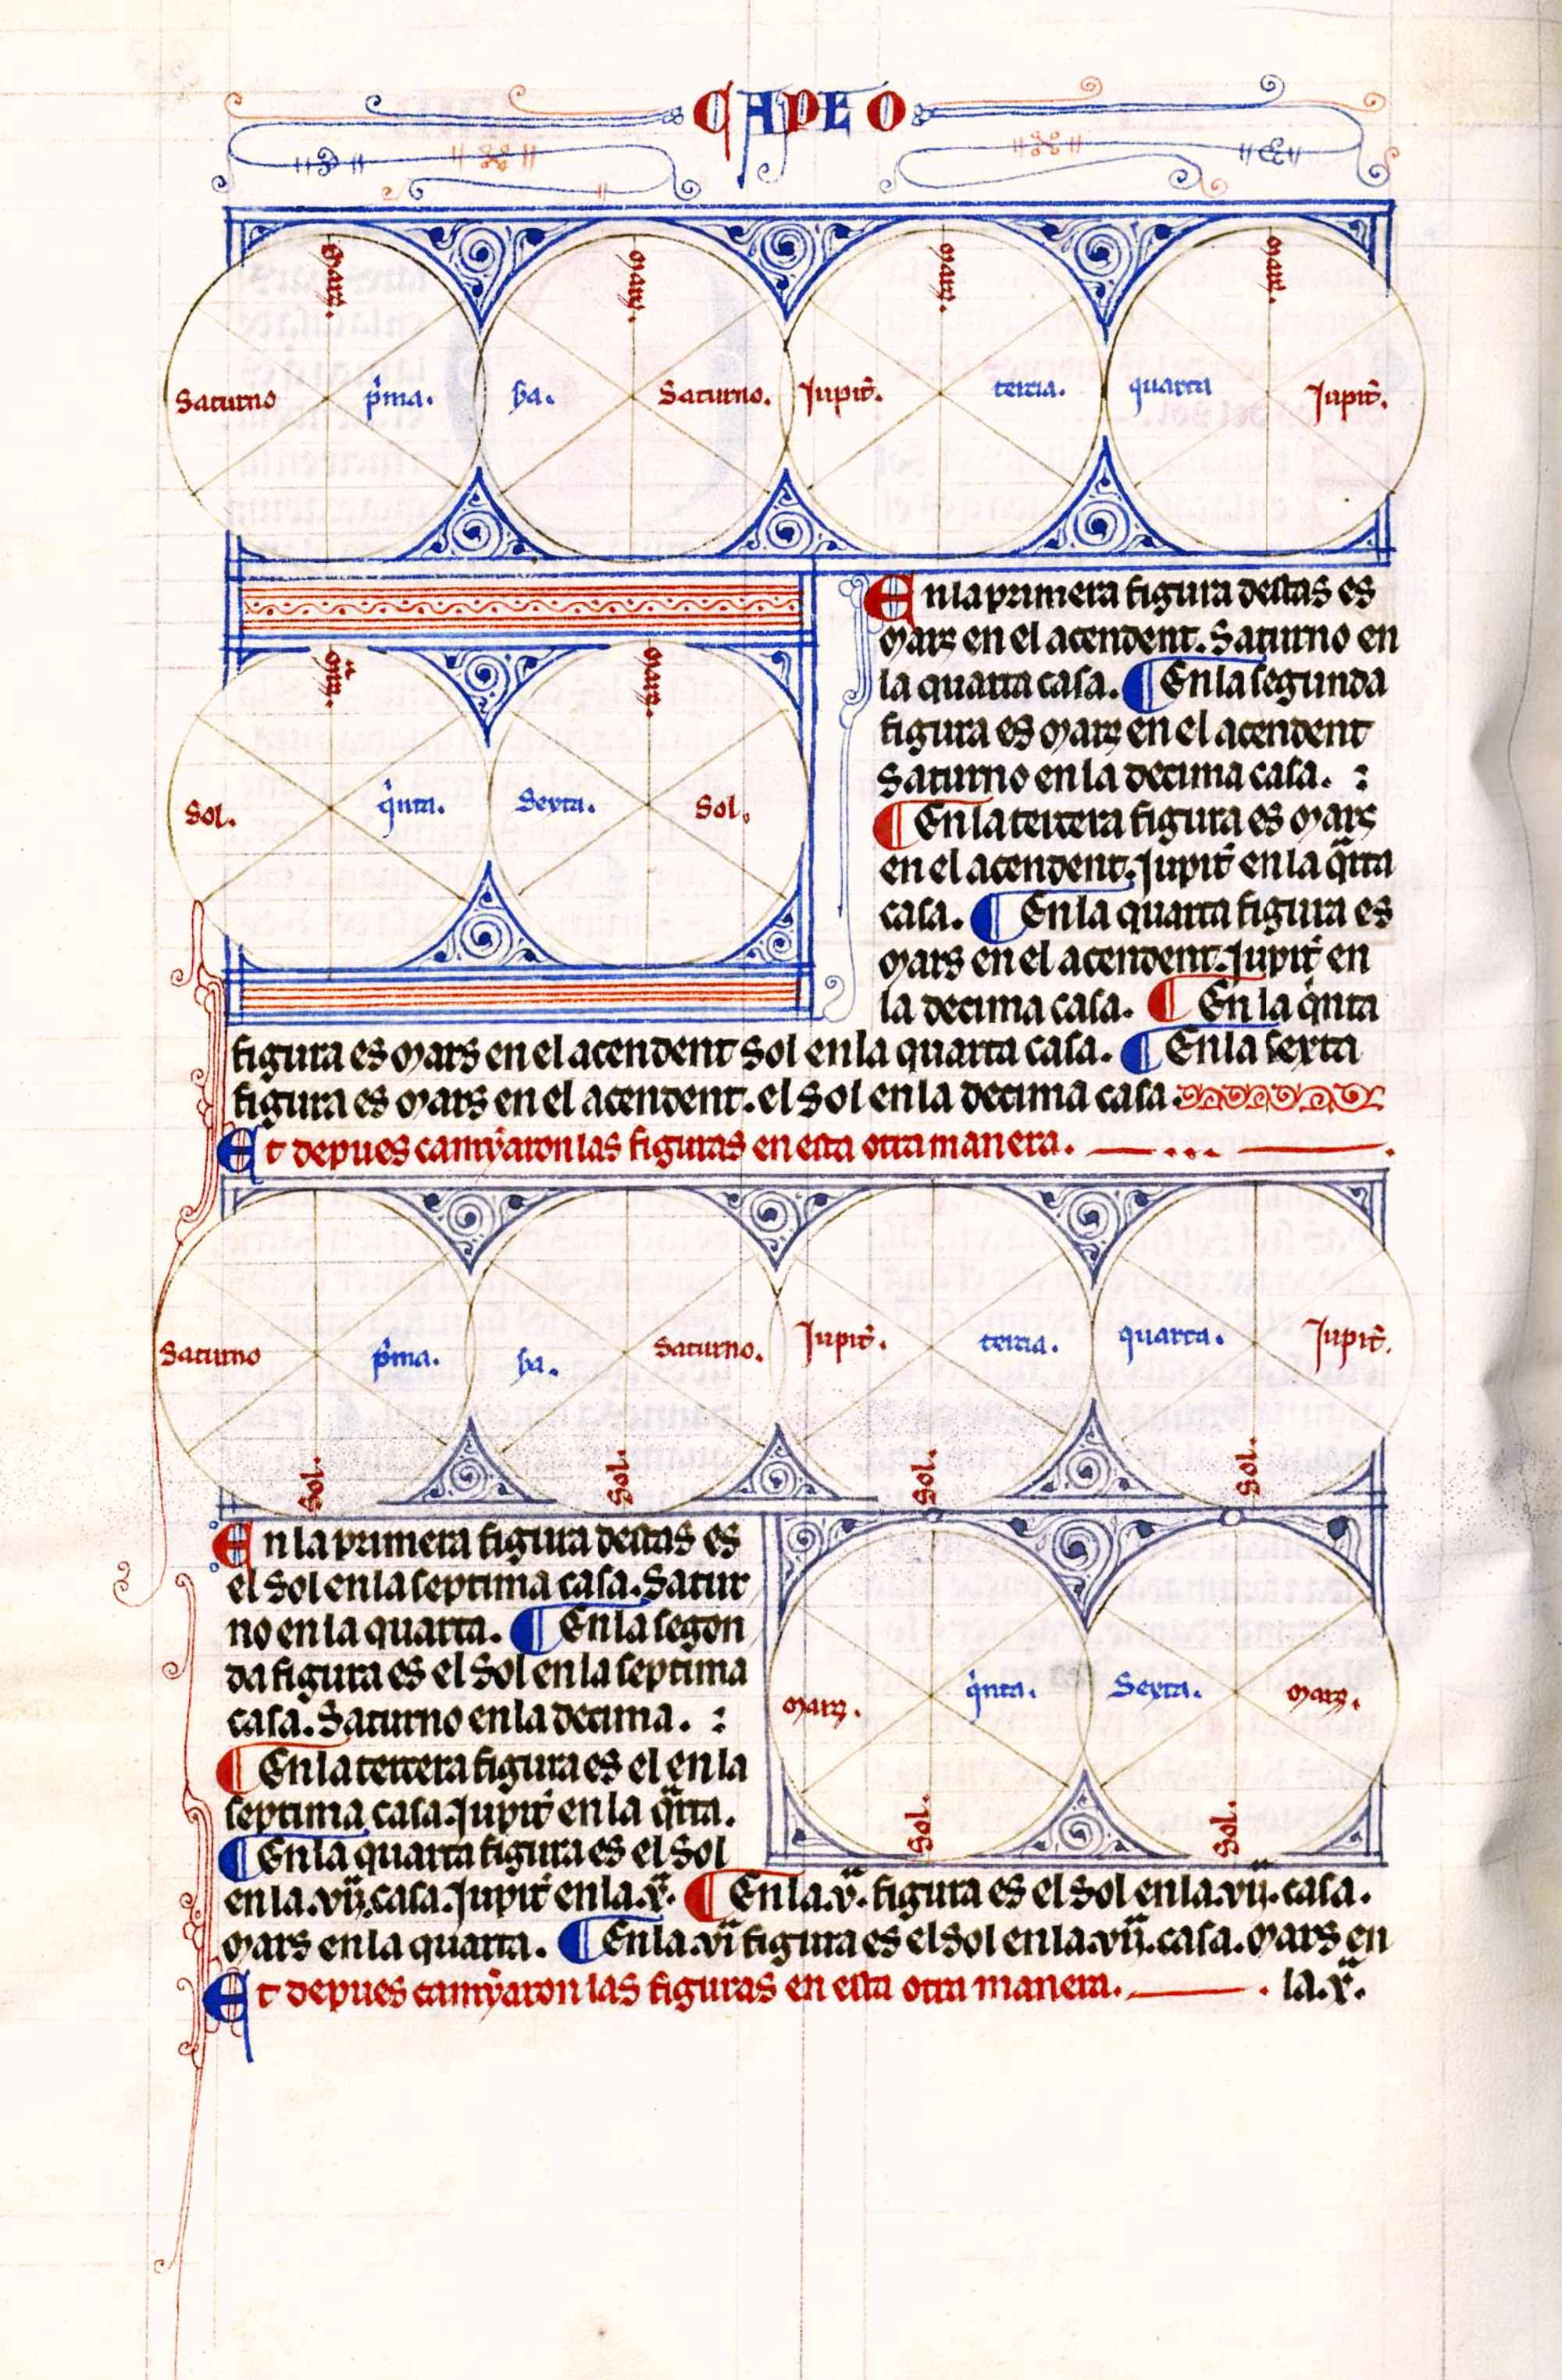 CAPEO
mars. mars. mars. mars.
Saturno pͥma. ẜa. Saturno. Jupit̉. tercia. quarta Jupit̉.
En la primera figura destas es
mars en el acendent. Saturno en
la quarta casa. ¶ En la segunda
figura es mars en el acendent
Saturno en la decima casa. :
¶ En la tercera figura es mars
en el acendent. Jupit̉ en la qͣrta
casa. ¶ En la quarta figura es
mars en el acendent. Jupit̉ en
la decima casa. ¶ En la qͥnta
mars. mars.
Sol. qͥnta. Sexta. Sol.
figura es mars en el acendent Sol en la quarta casa. ¶ En la sexta
figura es mars en el acendent. el Sol en la decima casa.
Et depues camyaron las figuras en esta otra manera.
Saturno pͥma. ẜa. Saturno. Jupit̉. tercia. quarta. Jupit̉.
Sol. Sol. Sol. Sol.
En la primera figura destas es
el Sol en la septima casa. Satur
no en la quarta. ¶ En la segon
da figura es el Sol en la septima
casa. Saturno en la decima. :
¶ En la tercera figura es el en la
septima casa. Jupit̉ en la qͣrta.
¶ En la quarta figura es el Sol
mars. qͥnta. Sexta. mars.
Sol. Sol.
en la .vijͣ. casa. Jupit̉ en la .xͣ. ¶ En la .vͣ. figura es el Sol en la .vijͣ. casa.
mars en la quarta. ¶ En la .viͣ figura es el Sol en la .vijͣ. casa. mars en
la .xͣ.
Et depues camyaron las figuras en esta otra manera.